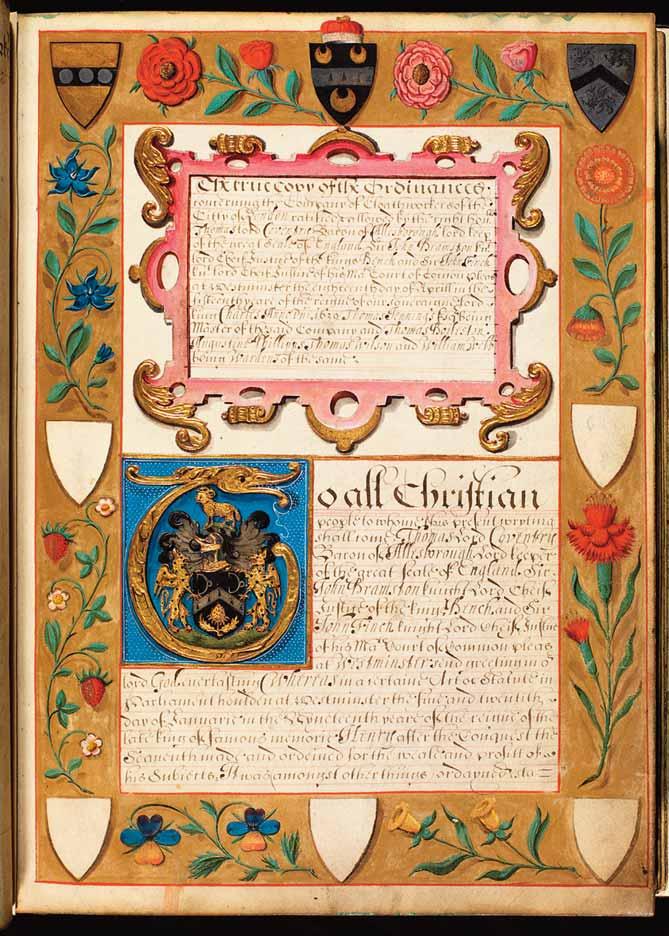 The true copy of the Ordinances
concerning the Company of Cloathworkers of the
Citty of London ratified & allowed by the right hon
Thomas lord Coventre Baron of Allesborough lord keep
of the great Seale of England Sir John Bramston kt
lord Cheif Justice of the kings Bench and Sir John Finch
kt lord Cheif Justice of his ma Court of Comon pleas
at Westminster the eighteenth day of Aprill in the
fifteenth yeare of the reigne of our soveraigne lord
king Charles Anno Dni 1639 Thomas Jennings Esq being
Master of the said Company and Thomas
Augustine Phillips Thomas and William
being Wardens of the same
To all Christian
people to whome this present wryting
shall come Thomas Lord Coventrie
Baron of Allesborough Lord keeper
of the great seale of England Sir
John Bramston knight Lord Cheif
Justice of the kings Bench and Sir
John Finch knight Lord Cheif Justice
of his Ma Court of Common pleas
at Westminster send greeting in o
lord God everlasting Whereas in a certaine Act or Statute in
Parliament houlden at Westminster the five and twentith
day of Januarie in the Nyneteenth yeare of the reigne of the
late king of famous memorie Henry after the Conquest the
Seaventh made and ordeined for the weale and profitt of
his Subiects, It was amongst other things ordayned sta=